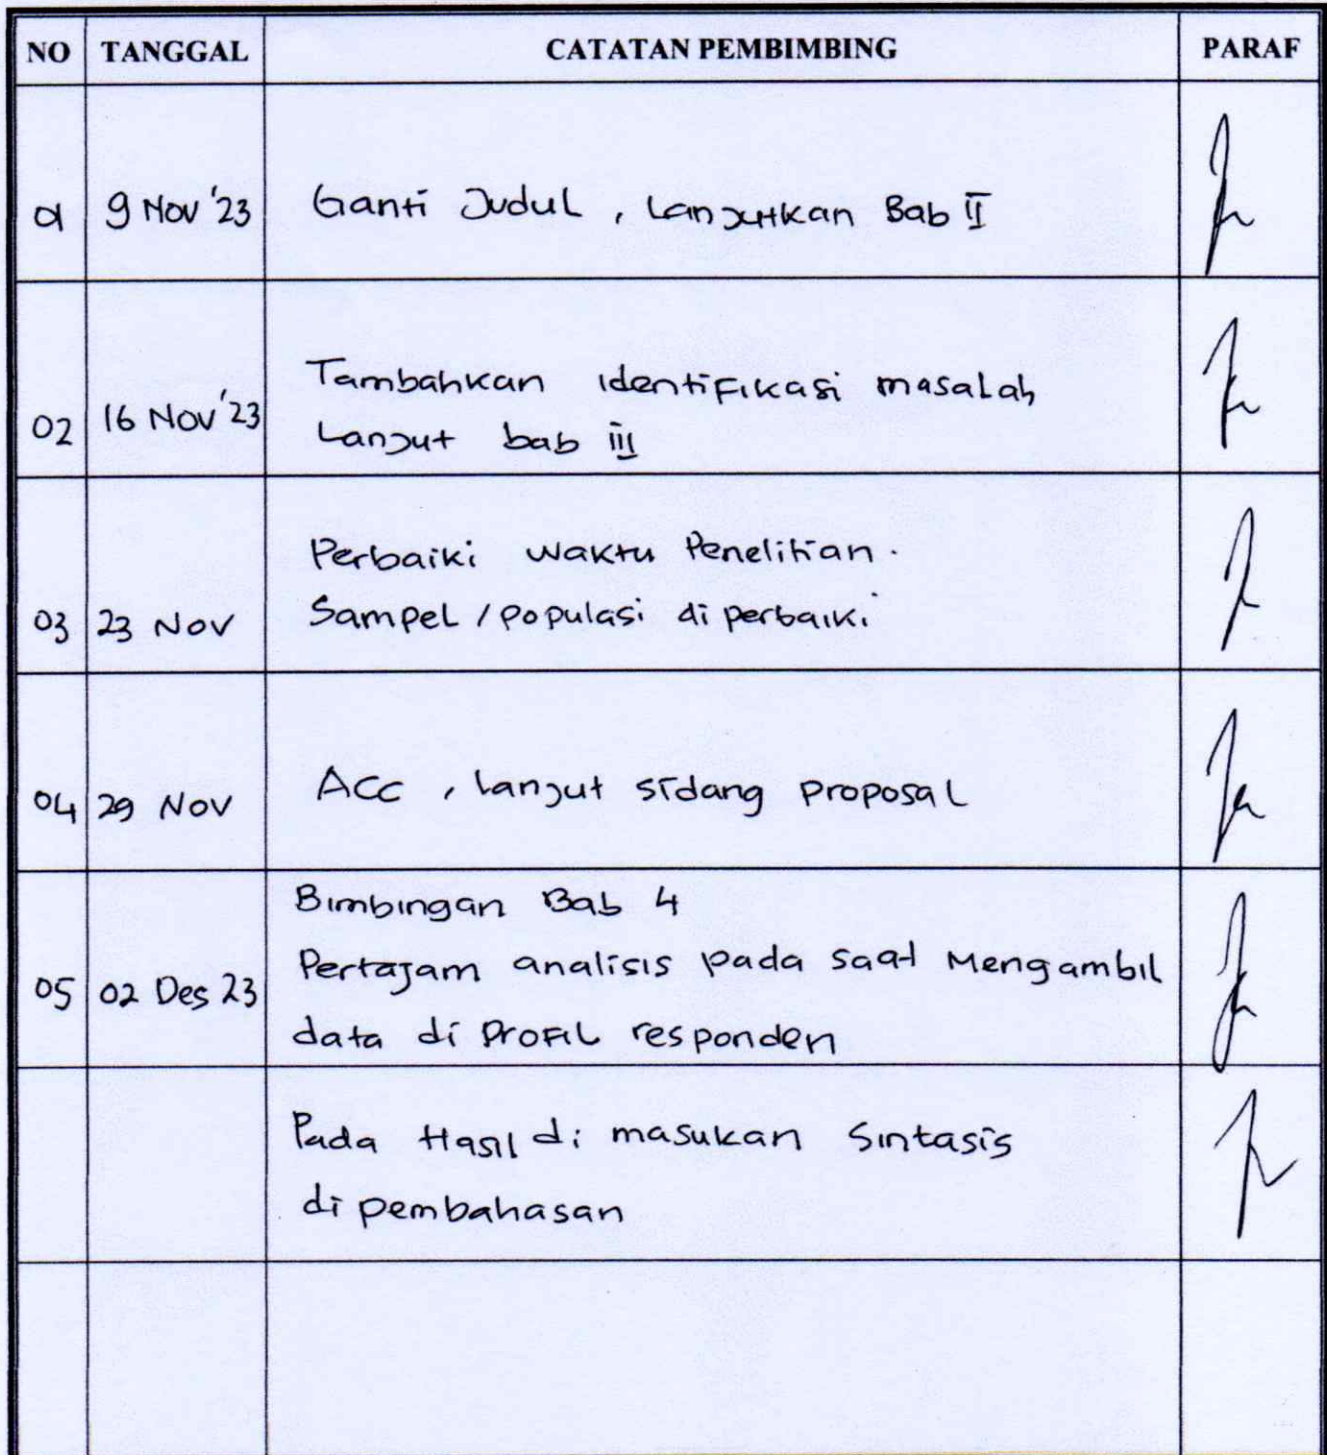 NO TANGGAL CATATAN PEMBIMBING PARAF
01 9 Nov '23 Ganti Judul, Lanjutkan Bab II
Tambahkan identifikasi masalah
02 16 Nov '23 Lanjut bab iii
Perbaiki waktu Penelitian.
03 23 Nov Sampel/populasi di perbaiki
04 29 Nov Acc, lanjut sidang proposal
Bimbingan Bab 4
05 02 Des 23 Pertajam analisis pada saat Mengambil
data di Profil responden
Pada Hasil di masukan Sintasis
di pembahasan